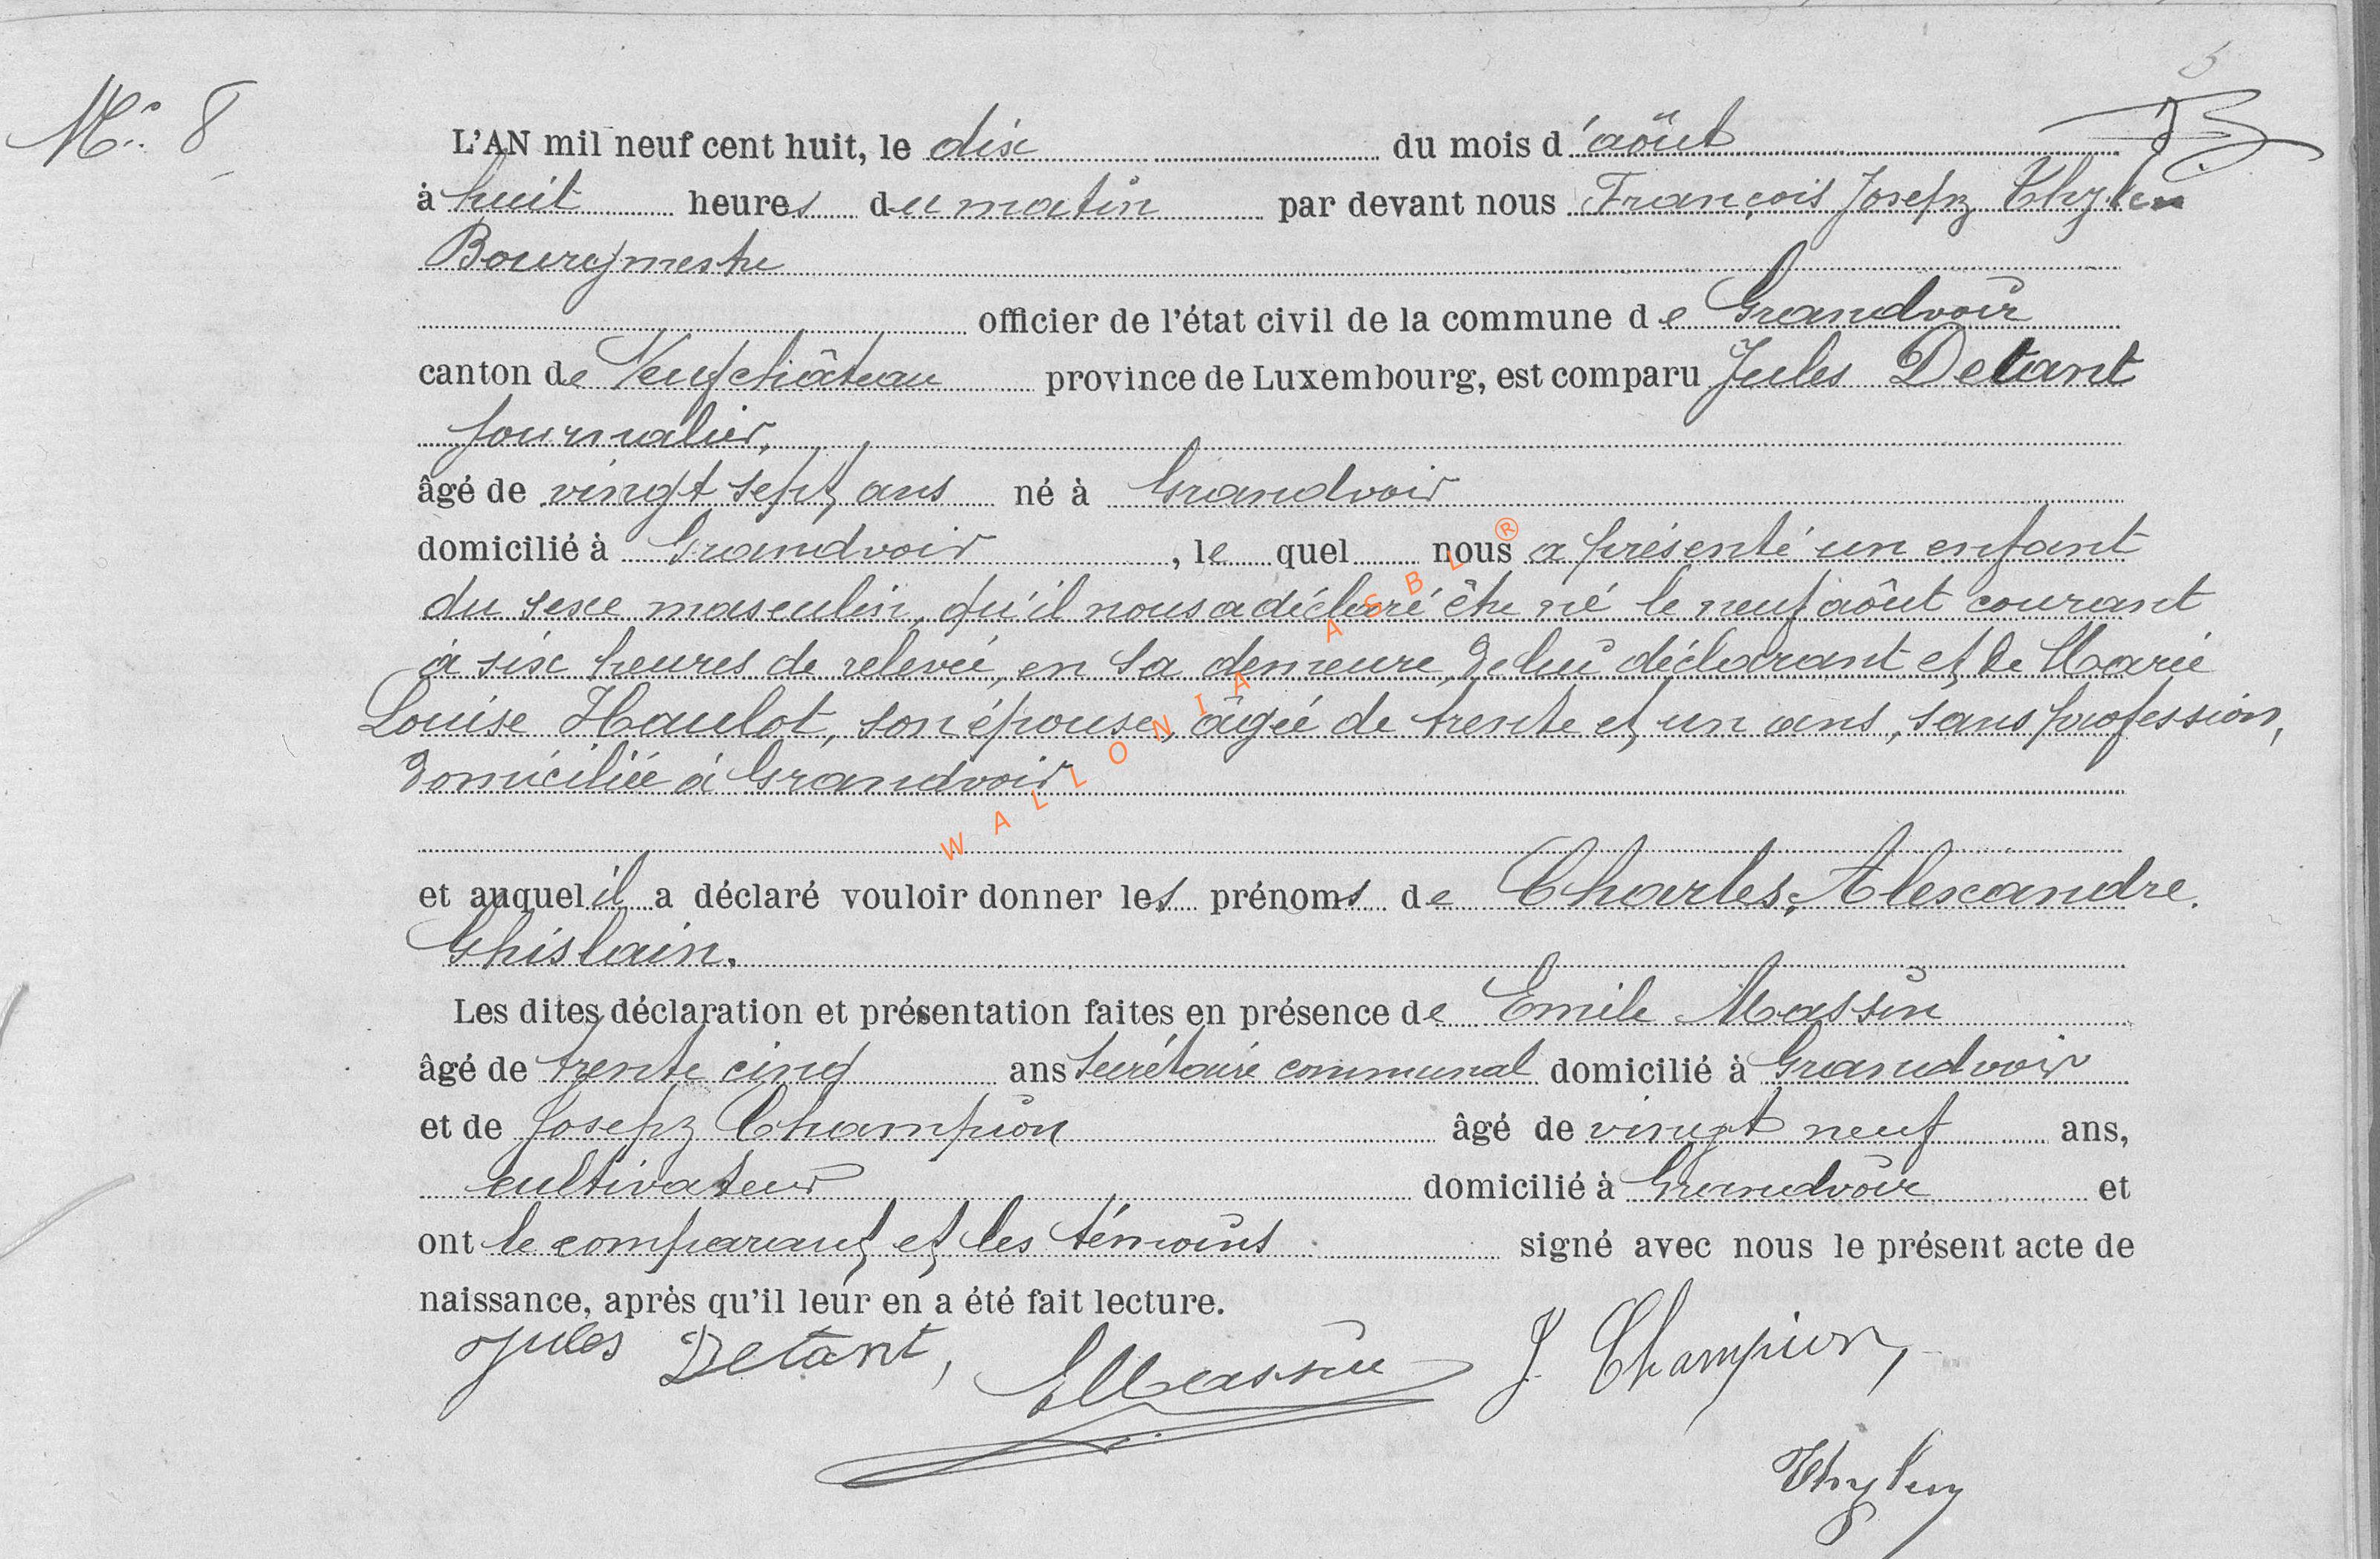 N° 8
L'AN mil neuf cent huit, le dix du mois d'août
à huit heures du matin par devant nous François Joseph Thyken
Bourgmestre
officier de l'état civil de la commune de Grandvoir
canton de Neufchâteau province de Luxembourg, est comparu Jules Detant
journalier,
âgé de vingt sept ans né à Grandvoir
domicilié à Grandvoir, le quel nous a présenté un enfant
du sexe masculin, qu'il nous a déclaré être né le neuf août courant
à six heures de relevée, en sa demeure, de lui déclarant et de Marie
Louise Haulot, son épouse, âgée de trente et un ans, sans profession,
domiciliée à Grandvoir
et auquel il a déclaré vouloir donner les prénoms de Charles, Alexandre.
Ghislain.
Les dites déclaration et présentation faites en présence de Emile Massin
âgé de trente cinq ans secrétaire communal domicilié à Grandvoir
et de Joseph Champion âgé de vingt neuf ans,
cultivateur domicilié à Grandvoir et
ont le comparant et les témoins signé avec nous le présent acte de
naissance, après qu'il leur en a été fait lecture.
Jules Detant, EMassin J. Champion,
Thyken
WALLONIA ASBL ®